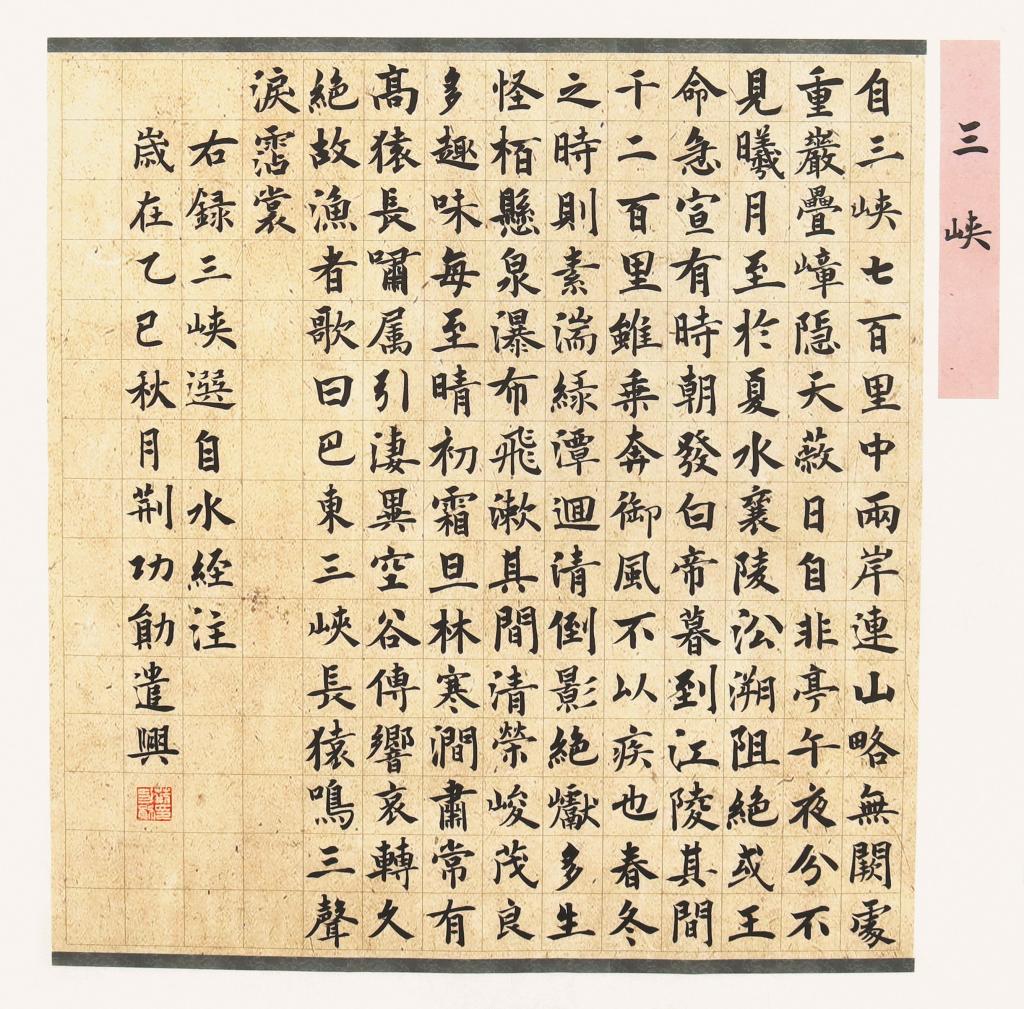 三峡
自三峡七百里中兩岸連山略無闕處
重巖疊嶂隠天蔽日自非亭午夜分不
見曦月至於夏水襄陵沿溯阻絶或王
命急宣有時朝發白帝暮到江陵其間
千二百里雖乗奔御風不以疾也春冬
之時則素湍緑潭迴清倒影絶巘多生
怪栢懸泉瀑布飛漱其間清榮峻茂良
多趣味每至晴初霜旦林寒澗肅常有
高猿長嘯属引淒異空谷傳響哀轉久
絶故漁者歌曰巴東三峽長猿鳴三聲
淚霑裳
右録三峡選自水經注
歲在乙巳秋月荆功勛遣興